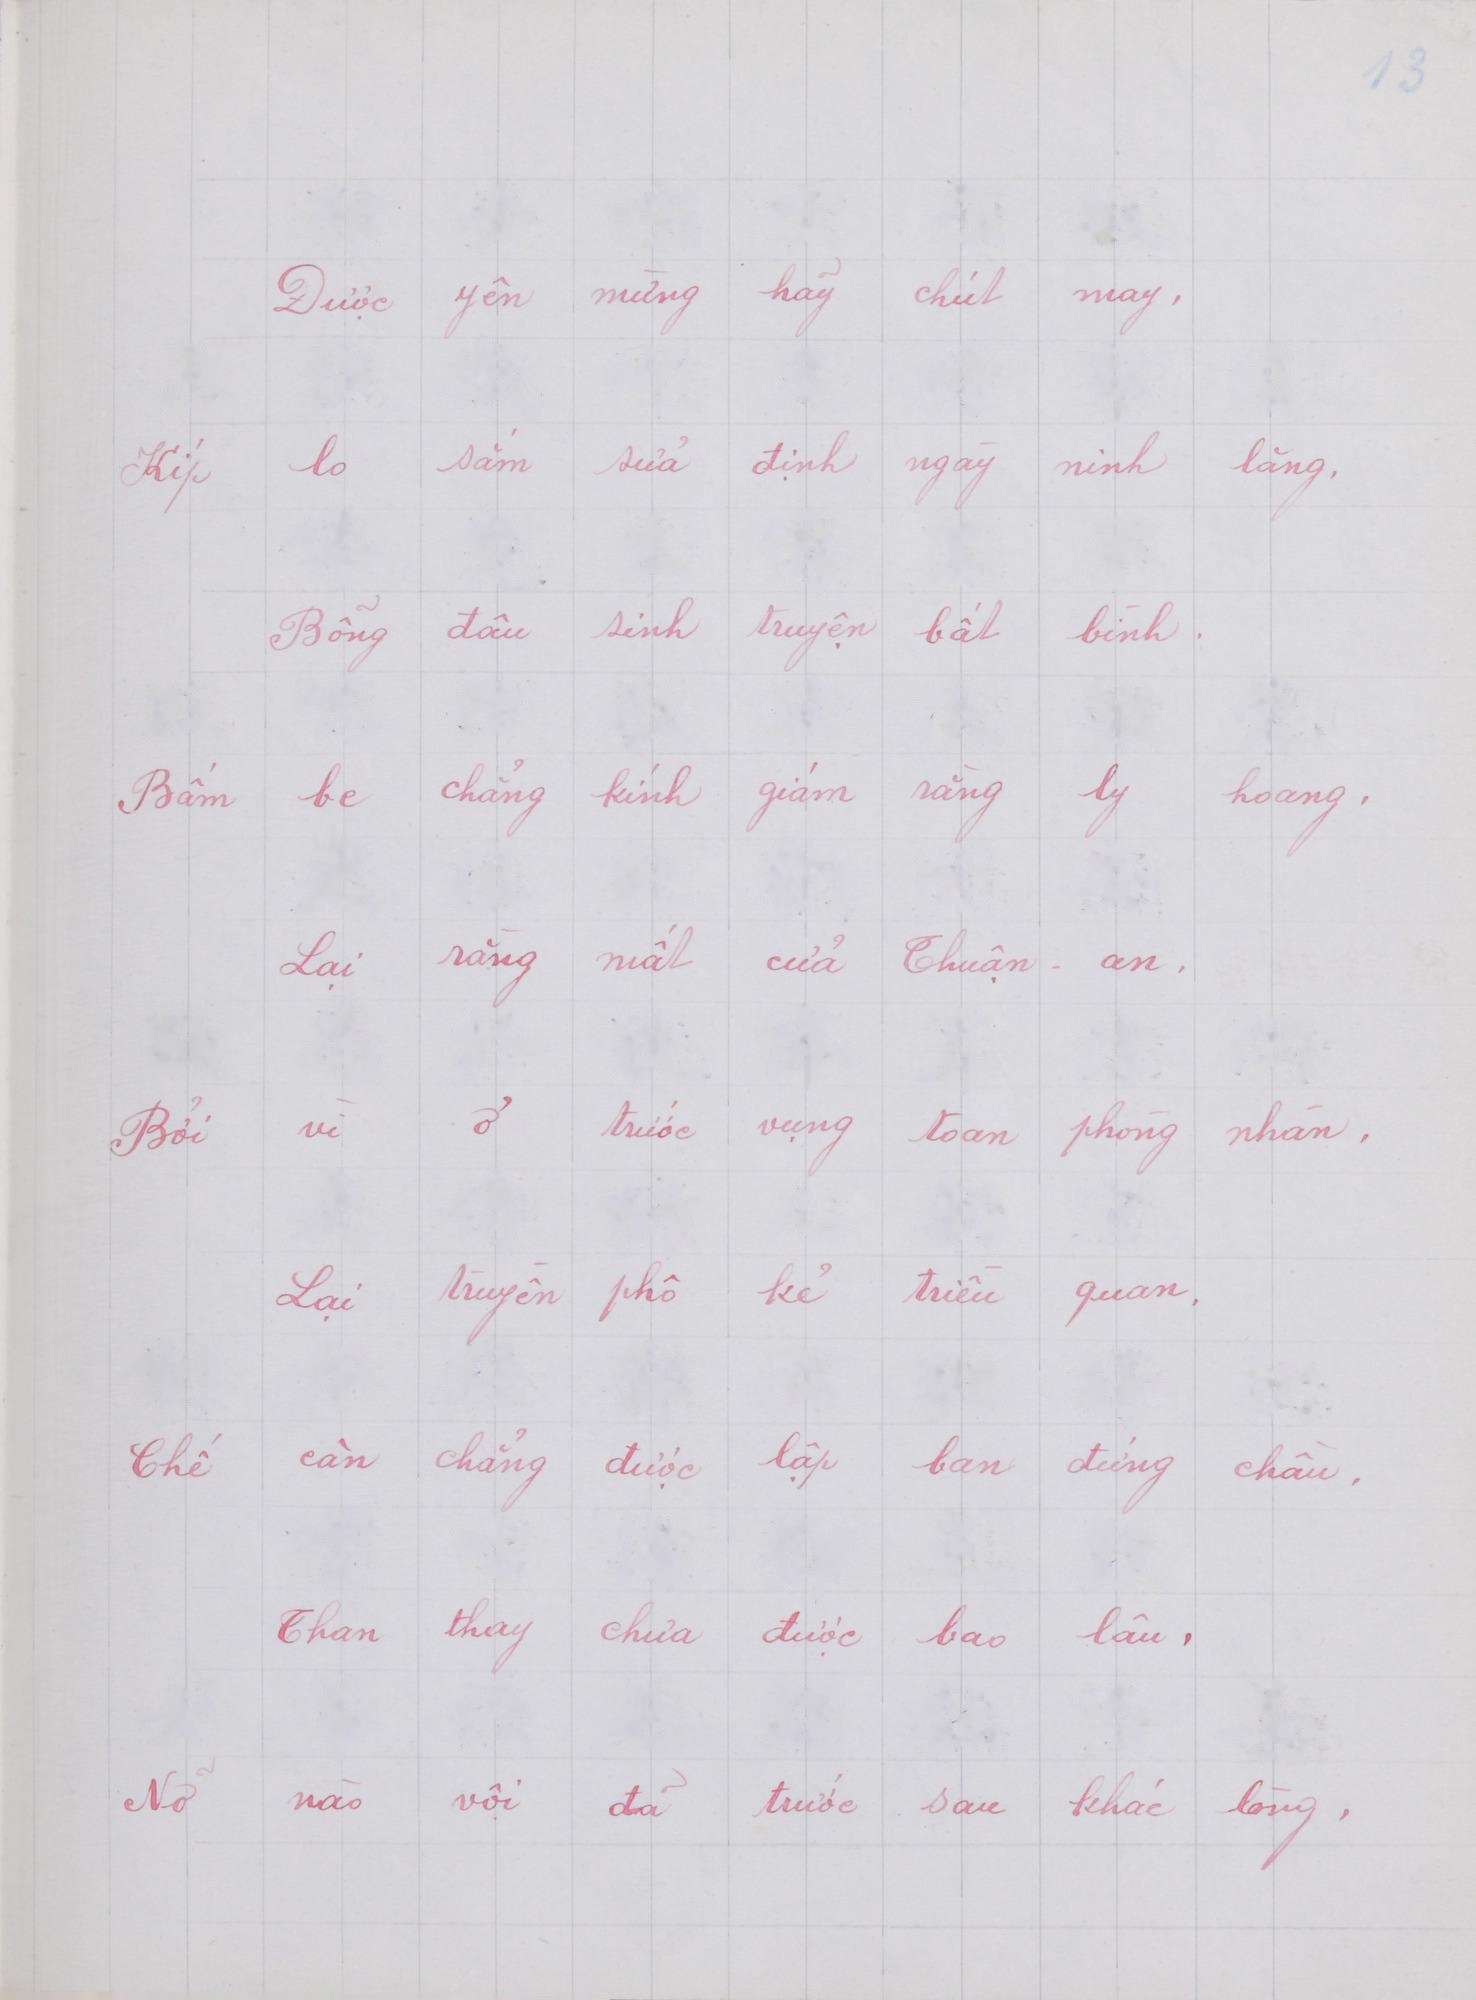 13
Được yên mừng hãy chút may,
Kíp lo sắm sửa định ngày ninh lăng,
Bỗng đâu sinh truyện bất bình.
Bấm be chẳng kính giám rằng ly hoang,
Lại rằng mất cửa Thuận-an,
Bởi vì ở trước vụng toan phòng nhàn,
Lại truyền phô kẻ triều quan,
Chế càn chẳng được lập ban đứng chầu,
Than thay chửa được bao lâu,
Nỡ nào vội đã trước sau khác lòng,